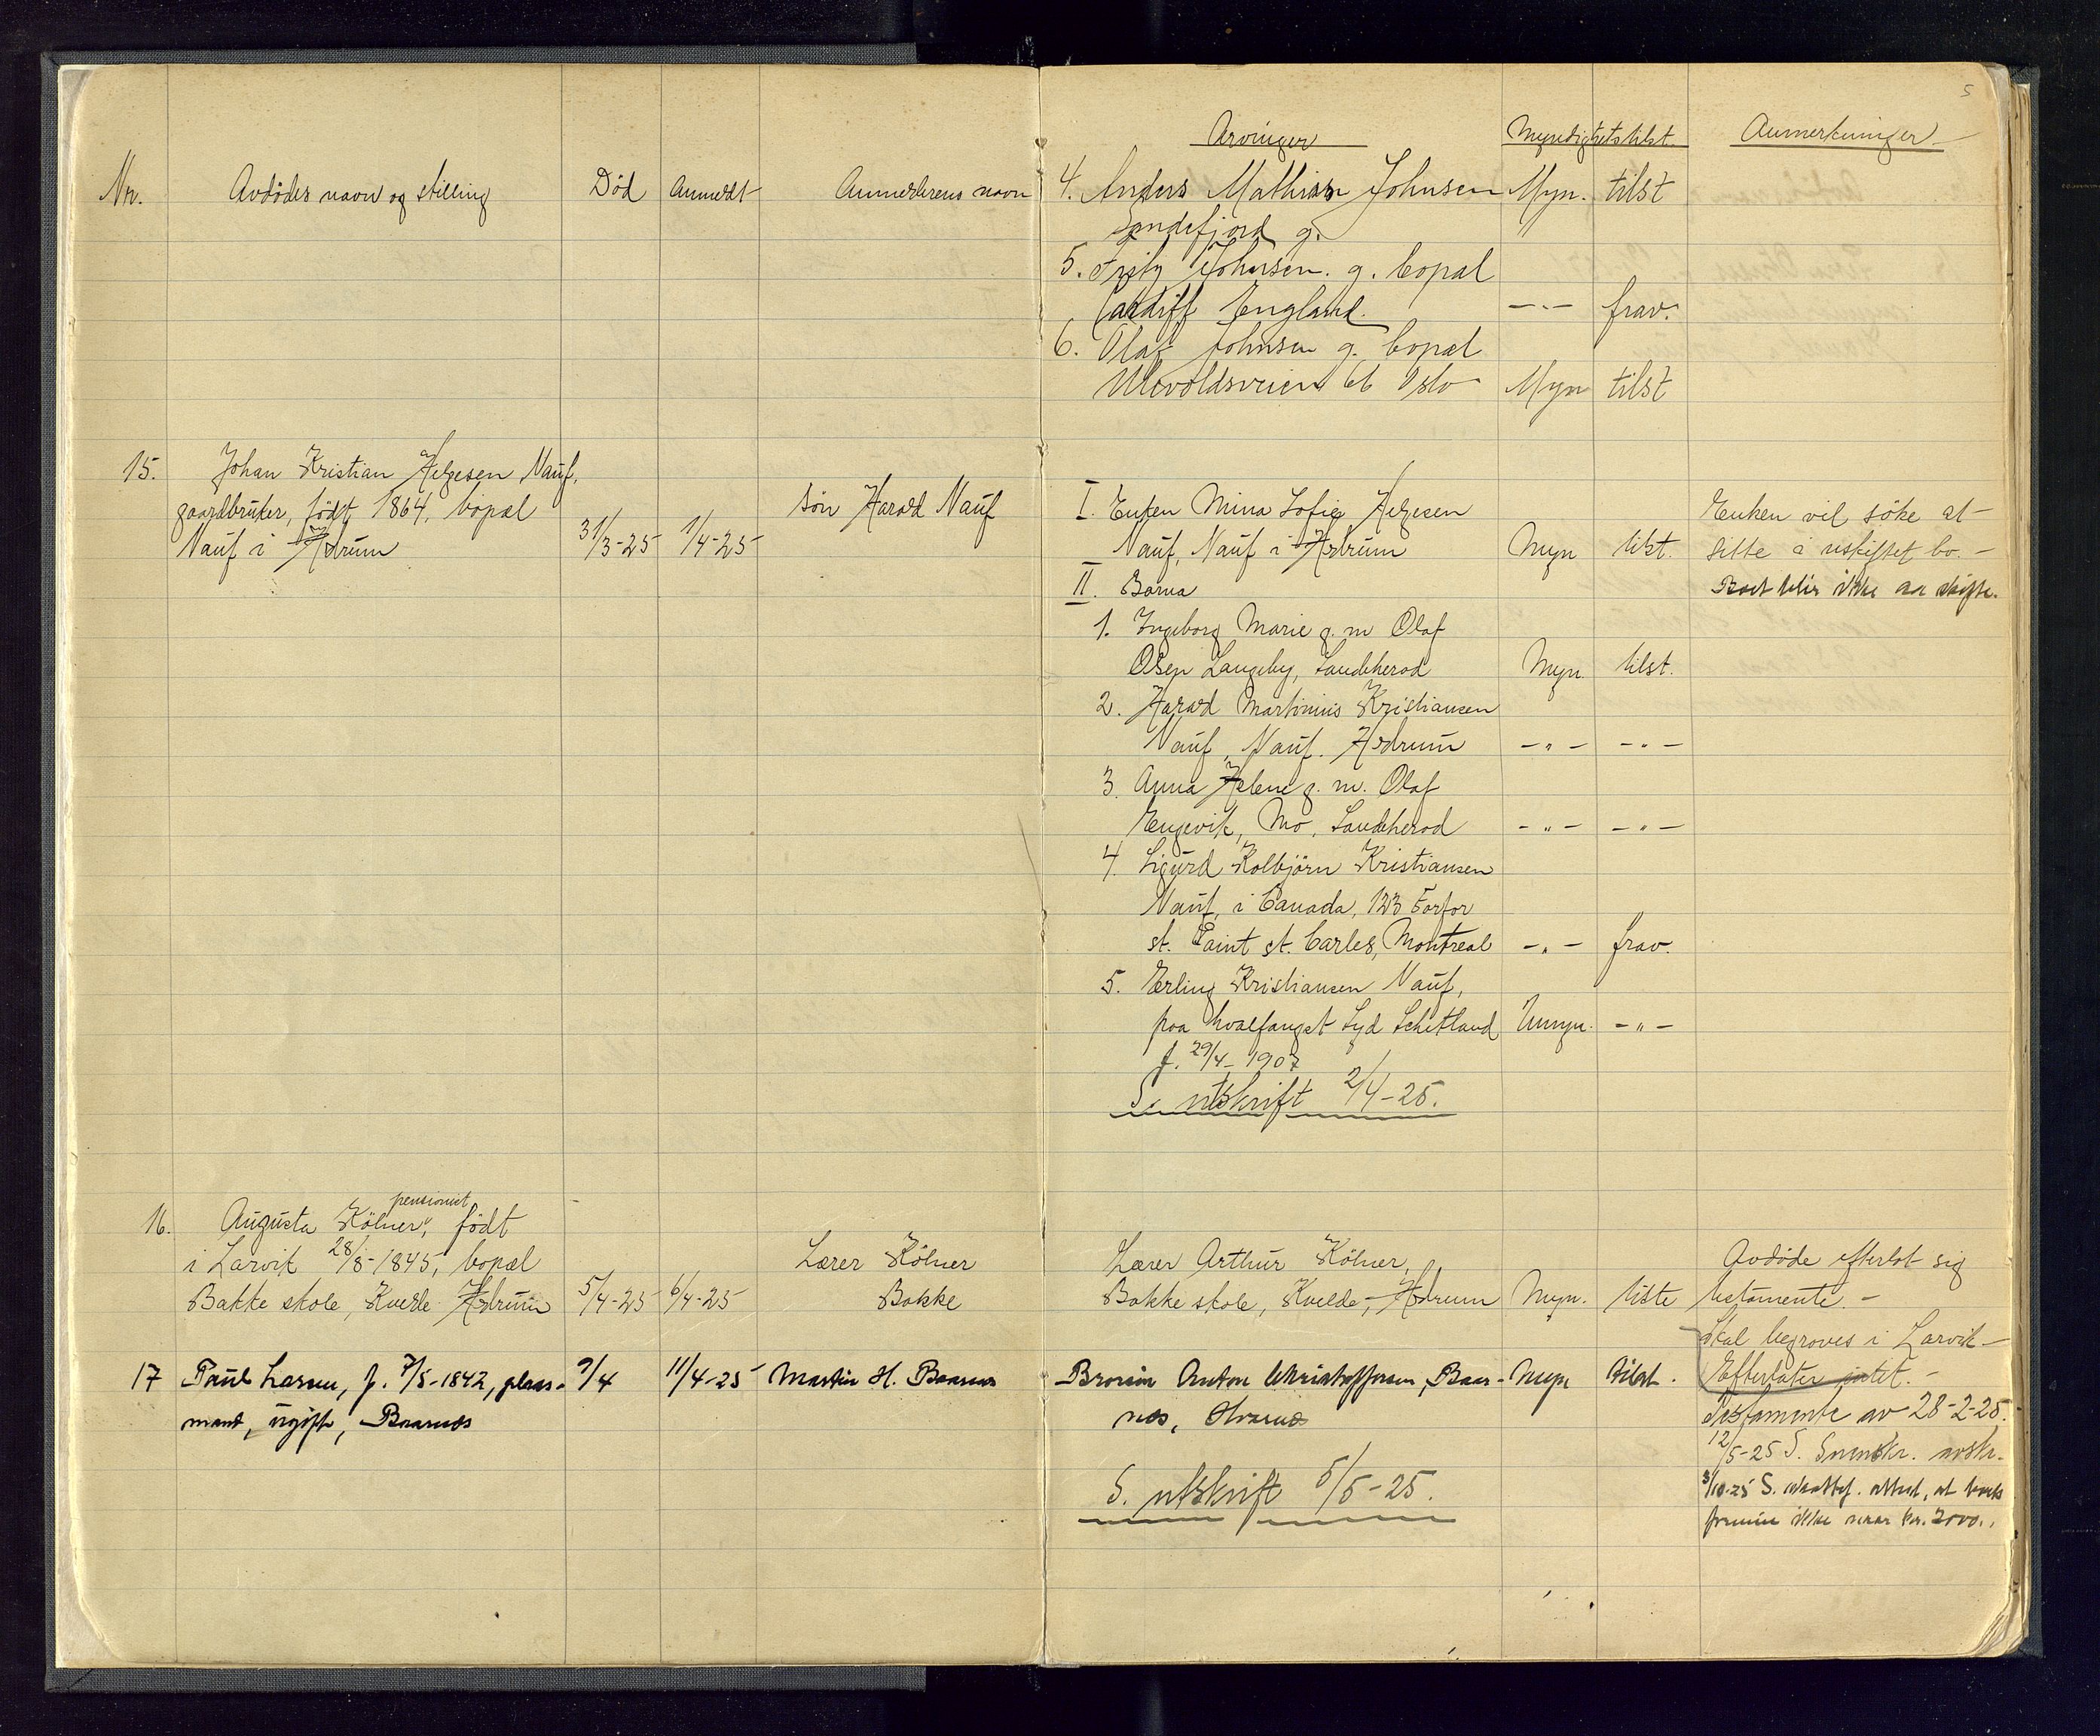 5
Nr. Avdødes navn og stilling Død Anmeldt Anmelderens navn
Arvinger Myndighetstilst. Anmerkninger
4. Anders Mathias Johnsen Myn. tilst
Sandefjord g.
5. Johnsen. g. bopæl
Cardiff England. -"- frav.
6. Olaf Johnsen g. bopæl
Ulevoldsveien Oslo Myn tilst
15. Johan Kristian Helgesen Nauf,
gaardbruker, født 1864, bopæl
Nauf i Hedrum 31/3-25 1/4-25
Søn Harald Nauf
I. Enken Mina Sofie Helgesen
Nauf, Nauf i Hedrum Myn tilst.
II. Barna
1. Ingeborg Marie g. m Olaf
Olsen Langeby, Sandeherad Myn. tilst.
2. Harald Martinius Kristiansen
Nauf, Nauf. Hedrum -"- -"-
3. Anna Helene g. m. Olaf
Engevik, Mo, Sandeherad -"- -"-
4. Sigurd Kolbjörn Kristiansen
Nauf, i Canada, 123 Forfor
st. Paint st. Carles, Montreal -"- frav.
5. Erling Kristiansen Nauf,
paa hvalfangst Syd Schetland Umyn. -"-
f. 29/4-1907
S. utskrift 2/4-25.
Enken vil söke at
sitte i uskiftet bo. -
Boet blir ikke at skifte.
16. Augusta Kölner, pensionist, födt
i Larvik 28/8-1845, bopæl
Bakke skole, Kvelde Hedrum 5/4-25 6/4-25
Lærer Kölner
Bakke
Lærer Arthur Kölner,
Bakke skole, Kvelde, Hedrum Myn. tilste
Avdöde efterlot sig
testamente. -
Skal begraves i Larvik -
Efterlater intet. -
17 Paul Larsen, f. 7/5-1842, plads-
mand, ugift, Baarnes
9/4 11/4-25 Martin H. Baarnes
Brorsön Anton Christoffersen, Baar- Myn tilst.
nes,
S. utskrift 5/5-25.
Testamente av 28-2-25.
12/5-25 S.
3/10-25 S. attest, at boets
formue ikke kr. 2000.,